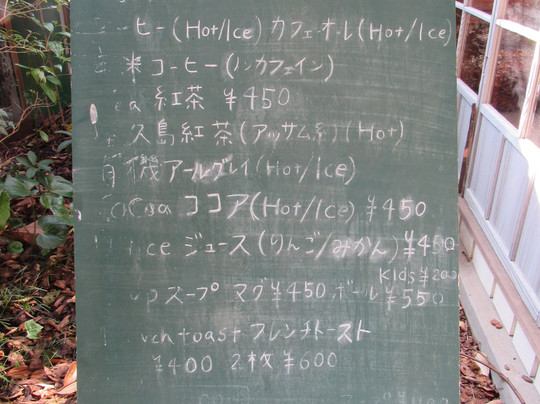 ーヒー(Hot/Ice) カフェ・オ・レ(Hot/Ice)
米コーヒー(ノンカフェイン)
ea 紅茶 ¥450
久島紅茶(アッサム系)(Hot)
有機アールグレイ(Hot/Ice)
Cocoa ココア(Hot/Ice) ¥450
ice ジュース(りんご/みかん) ¥450
Kids ¥200
up スープ マグ ¥450, ボール ¥550
ench toast フレンチトースト
¥400 2枚 ¥600